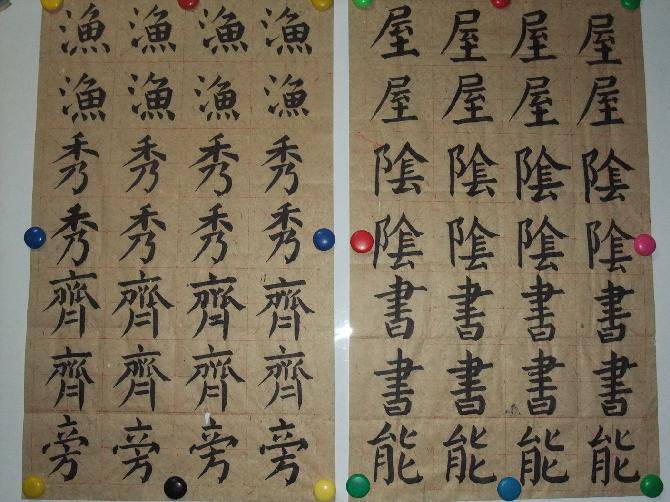 漁漁漁漁
漁漁漁漁
秀秀秀秀
秀秀秀秀
齊齊齊齊
齊齊齊齊
旁旁旁旁
屋屋屋屋
屋屋屋屋
陰陰陰陰
陰陰陰陰
書書書書
書書書書
能能能能